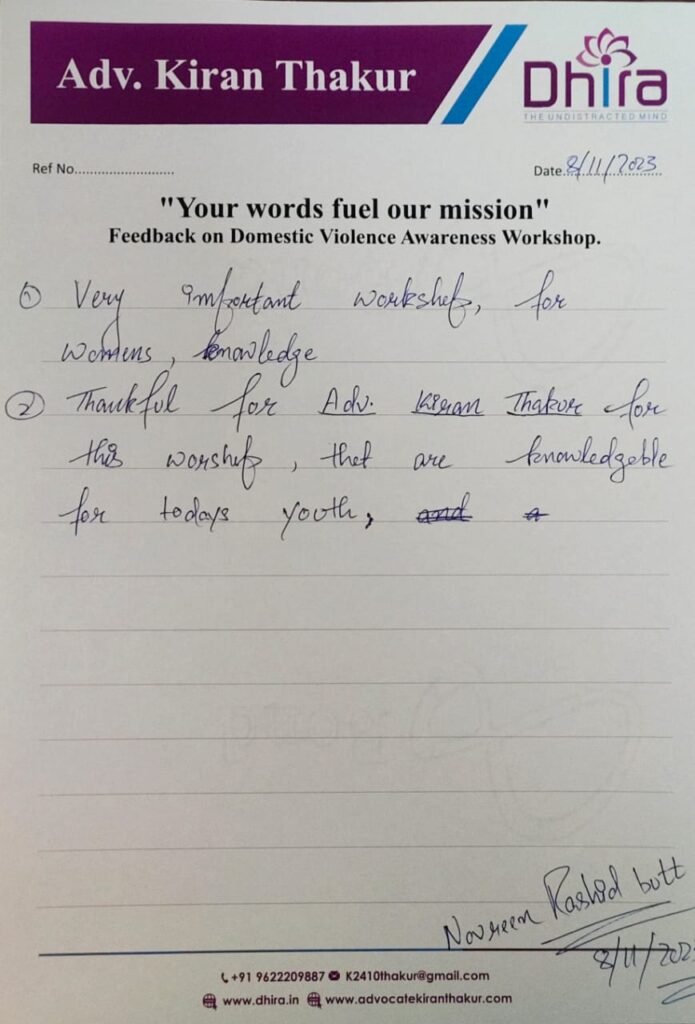 Adv. Kiran Thakur
Dhira
THE UNDISTRACTED MIND
Ref No.........................
Date 8/11/2023
"Your words fuel our mission"
Feedback on Domestic Violence Awareness Workshop.
① Very important workshop, for
womens, knowledge
② Thankful for Adv. Kiran Thakur for
this worshop, thet are knowledgeble
for todays youth, and a
Novreen Rashid butt
8/11/202
+91 9622209887 K2410thakur@gmail.com
www.dhira.in www.advocatekiranthakur.com